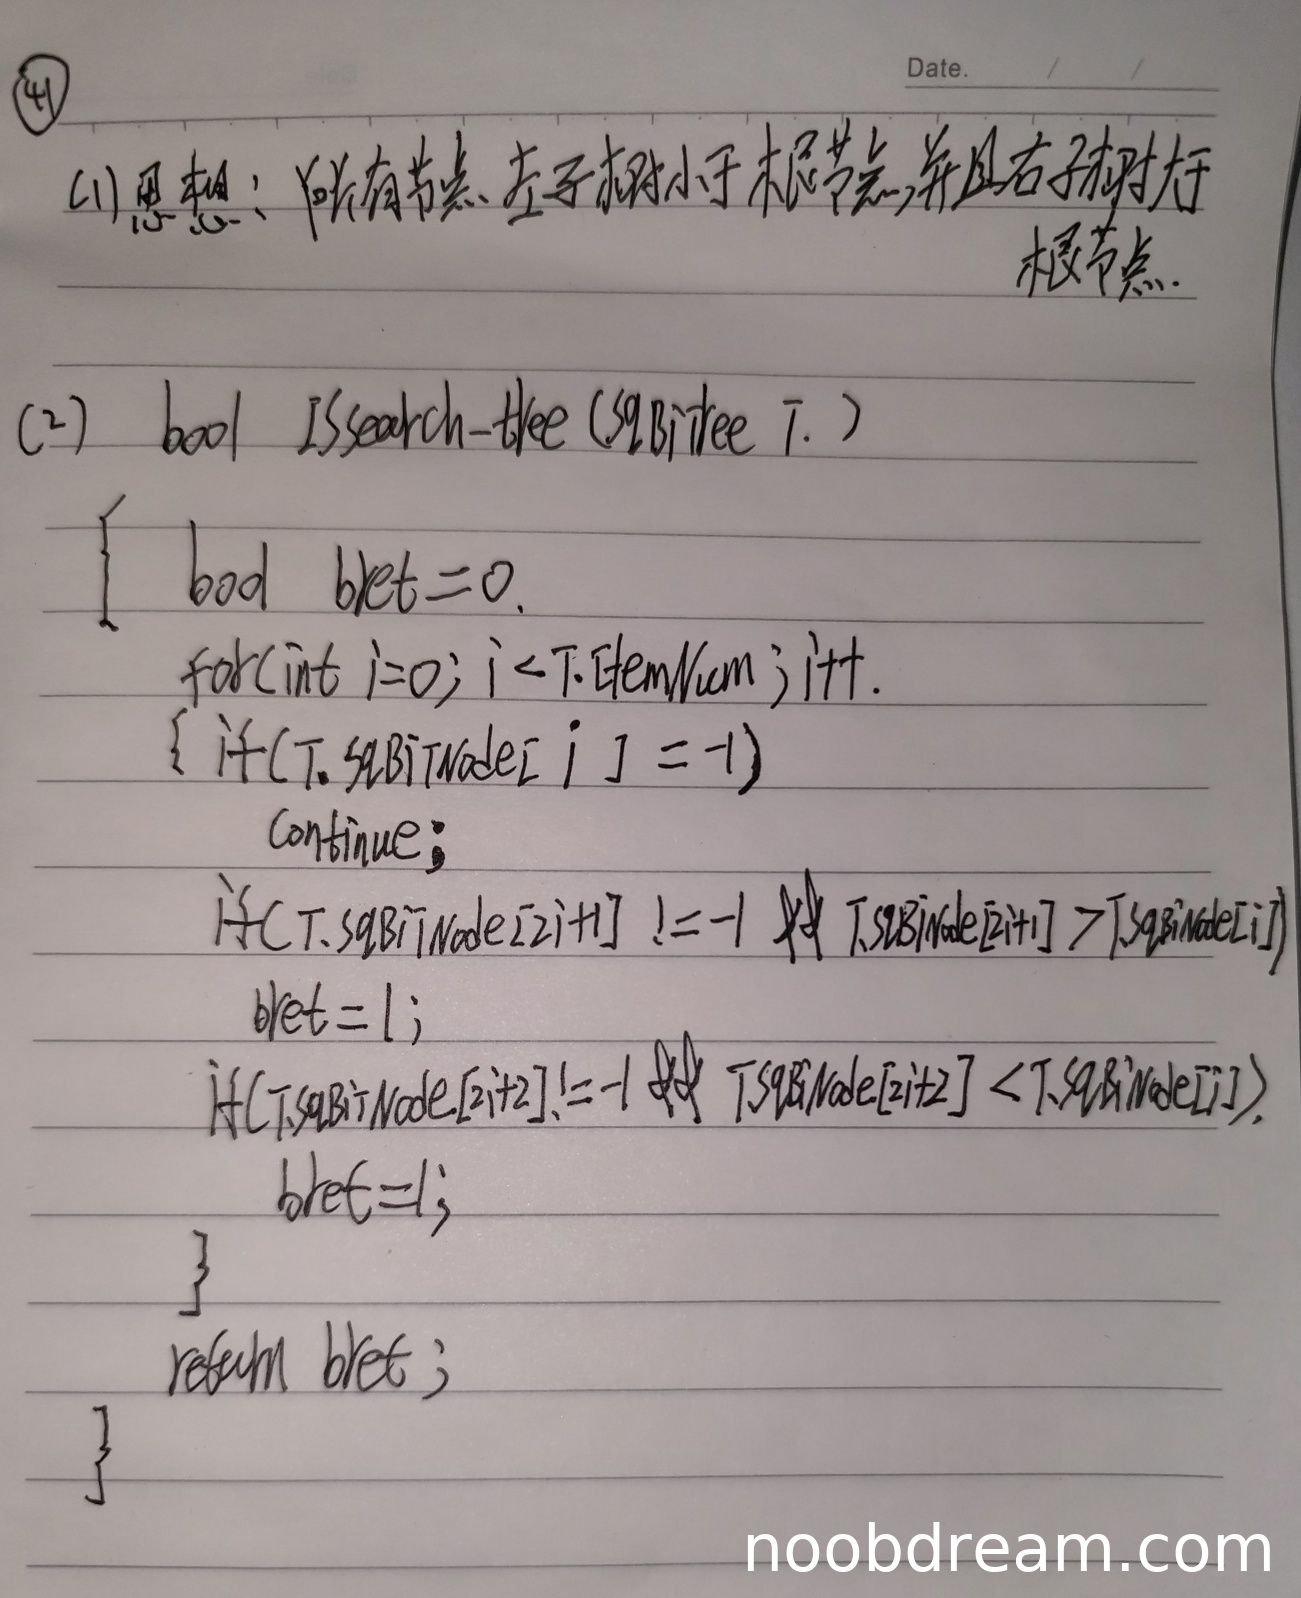 Date. / /
41
(1) 思想：所有节点、左子树小于根节点,并且右子树大于
根节点.
(2) bool ISsearch-tree (SqBiTree T.)
{ bool bret=0.
for(int i=0; i<T.ElemNum; i++.
{ if(T.SqBiTNode[i] = -1)
continue;
if(T.SqBiTNode[2i+1] != -1 && T.SqBiNode[2i+1] > T.SqBiNode[i])
bret=1;
if(T.SqBiTNode[2i+2] != -1 && T.SqBiNode[2i+2] < T.SqBiNode[i]).
bret=1;
}
return bret;
}
noobdream.com